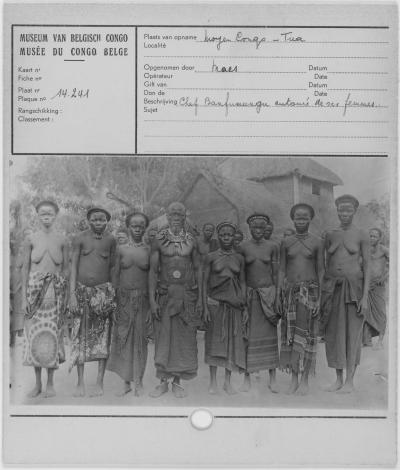 MUSEUM VAN BELGISCH CONGO
MUSÉE DU CONGO BELGE
Kaart n°
Fiche n°
Plaat n°
Plaque n° 14.241
Rangschikking :
Classement :
Plaats van opname Moyen Congo - Tua
Localité
Opgenomen door Maes Datum
Opérateur Date
Gift van Datum
Don de Date
Beschrijving Chef entouré de ses femmes.
Sujet